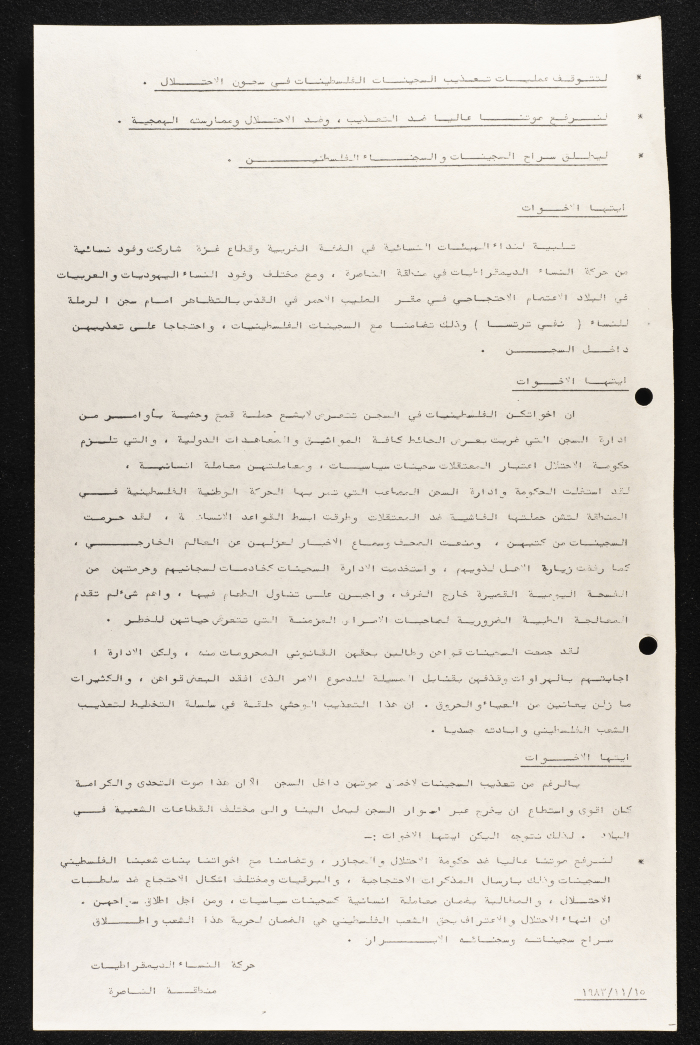 * لتتوقف عمليات تعذيب السجينات الفلسطينات في سجون الاحتلال .
* لنرفع صوتنا عاليا ضد التعذيب ، وضد الاحتلال وممارسته الهمجية .
* ليطلق سراح السجينات والسجناء الفلسطينين .
ايتها الاخوات
تلبية لنداء الهيئات النسائية في الضفة الغربية وقطاع غزة شاركت وفود نسائية
من حركة النساء الديمقراطيات في منطقة الناصرة ، ومع مختلف وفود النساء اليهوديات والعربيات
في البلاد الاعتصام الاحتجاجي في مقر الصليب الاحمر في القدس بالتظاهر امام سجن الرملة
للنساء ( نفي ترتسا ) وذلك تضامنا مع السجينات الفلسطينيات ، واحتجاجا على تعذيبهن
داخل السجن .
ايتها الاخوات
ان اخواتكن الفلسطينيات في السجن تتعرض لابشع حملة قمع وحشية بأوامر من
ادارة السجن التي ضربت بعرض الحائط كافة المواثيق والمعاهدات الدولية ، والتي تلزم
حكومة الاحتلال اعتبار المعتقلات سجينات سياسيات ، ومعاملتهن معاملة انسانية ،
لقد استغلت الحكومة وادارة السجن المصاعب التي تمر بها الحركة الوطنية الفلسطينية في
المنطقة لتشن حملتها الفاشية ضد المعتقلات وخرقت ابسط القواعد الانسانية ، لقد حرمت
السجينات من كتبهن ، ومنعت الصحف وسماع الاخبار لعزلهن عن العالم الخارجي ،
كما رفضت زيارة الاهل لذويهم ، واستخدمت الادارة السجينات كخادمات لسجانيهم وحرمتهن من
الفسحة اليومية القصيرة خارج الغرف ، واجبرن على تناول الطعام فيها ، واهم شيء لم تقدم
المعالجة الطبية الضرورية لصاحبات الامراض المزمنة التي تتعرض حياتهن للخطر .
لقد جمعت السجينات قواهن وطالبن بحقهن القانوني المحرومات منه ، ولكن الادارة ا
اجابتهم بالهراوات وقذفهن بقنابل المسيلة للدموع الامر الذي افقد البعض قواهن ، والكثيرات
ما زلن يعانين من العياء والحروق . ان هذا التعذيب الوحشي حلقة في سلسلة التخطيط لتعذيب
الشعب الفلسطيني وابادته جسديا .
ايتها الاخوات
بالرغم من تعذيب السجينات لاخماد صوتهن داخل السجن الا ان هذا صوت التحدي والكرامة
كان اقوى واستطاع ان يخرج عبر اسوار السجن ليصل الينا والى مختلف القطاعات الشعبية في
البلاد . لذلك نتوجه اليكن ايتها الاخوات :ـ
* لنرفع صوتنا عاليا ضد حكومة الاحتلال والمجازر ، وتضامنا مع اخواتنا بنات شعبنا الفلسطيني
السجينات وذلك بارسال المذكرات الاحتجاجية ، والبرقيات ومختلف اشكال الاحتجاج ضد سلطات
الاحتلال ، والمطالبة بضمان معاملة انسانية كسجينات سياسيات ، ومن اجل اطلاق سراحهن .
ان انهاء الاحتلال والاعتراف بحق الشعب الفلسطيني هي الضمان لحرية هذا الشعب واطلاق
سراح سجيناته وسجنائه الابرار .
حركة النساء الديمقراطيات
منطقة الناصرة
١٩٨٣/١١/١٥